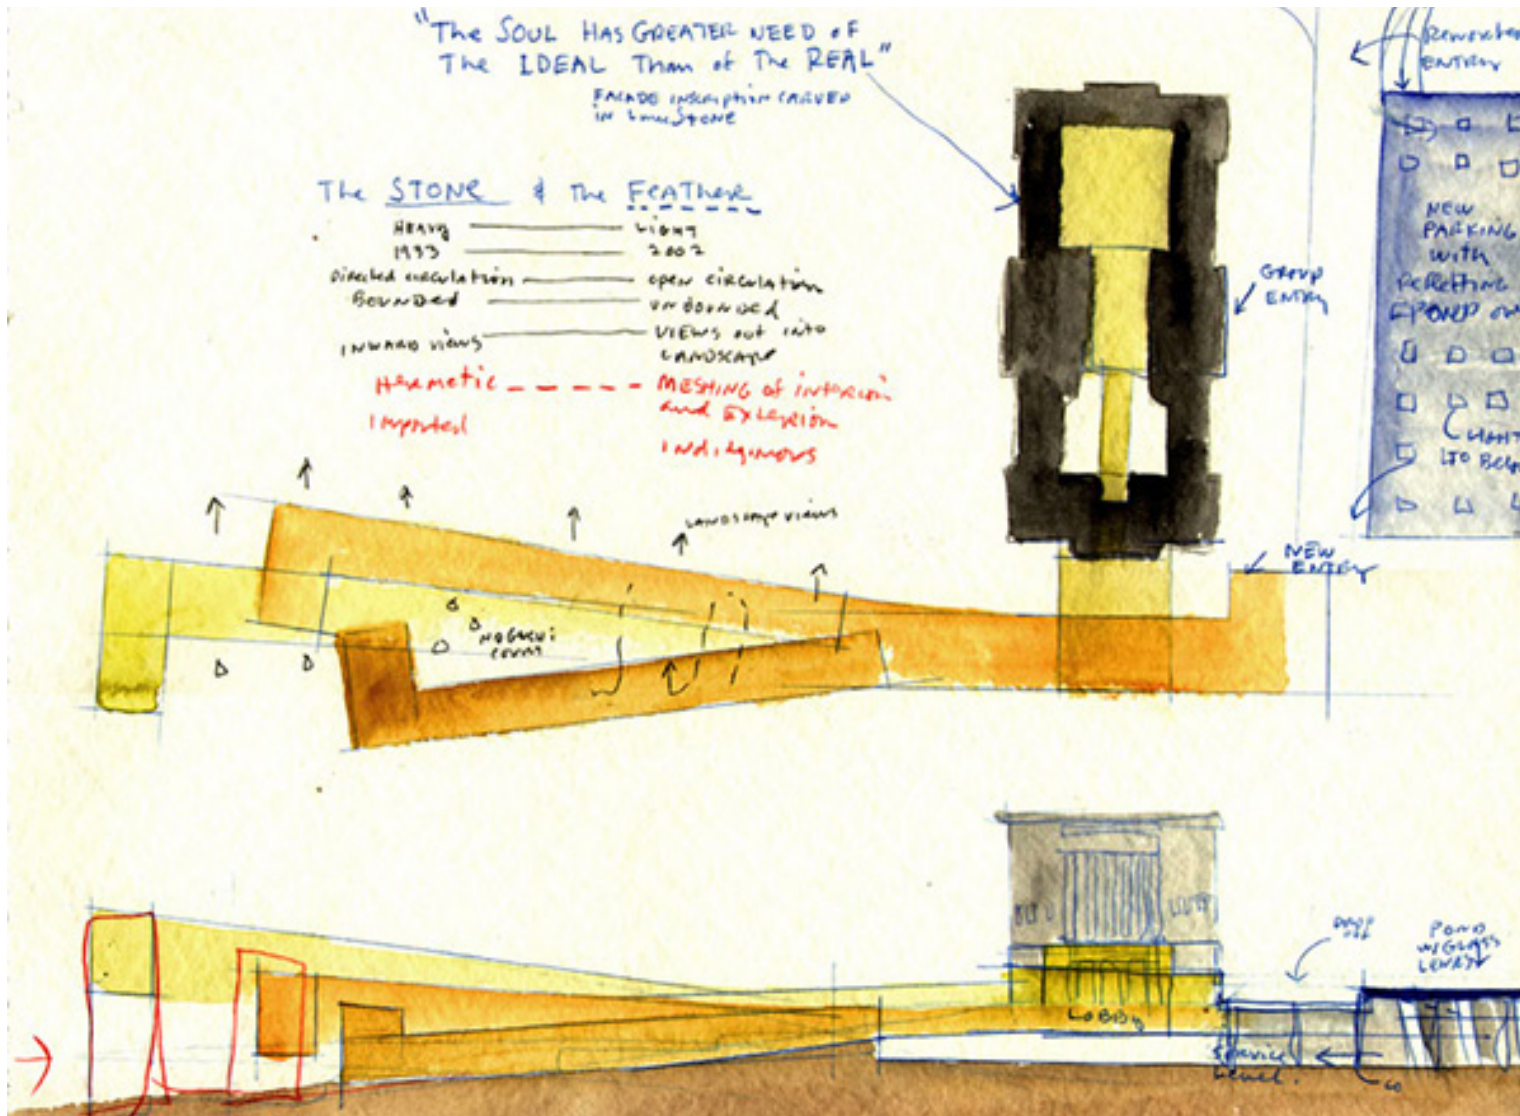 "The SOUL HAS GREATER NEED OF
The IDEAL Than of The REAL"
FACADE inscription CARVED
in LimeStone
The STONE & The FeaTher
HEAVY LIGHT
1933 2002
Directed circulation open circulation
BOUNDED UNBOUNDED
INWARD views VIEWS out into
LANDSCAPE
Hermetic MESHING of interior
and Exterior
Imported
Indiginous
LANDSCAPE VIEWS
NOGUCHI
COURT
GROUP
ENTRY
NEW
ENTRY
ENTRY
NEW
PARKING
with
Reflecting
POND
LOBBY
DROP
OFF
POND
W/GLASS
Service
Level.